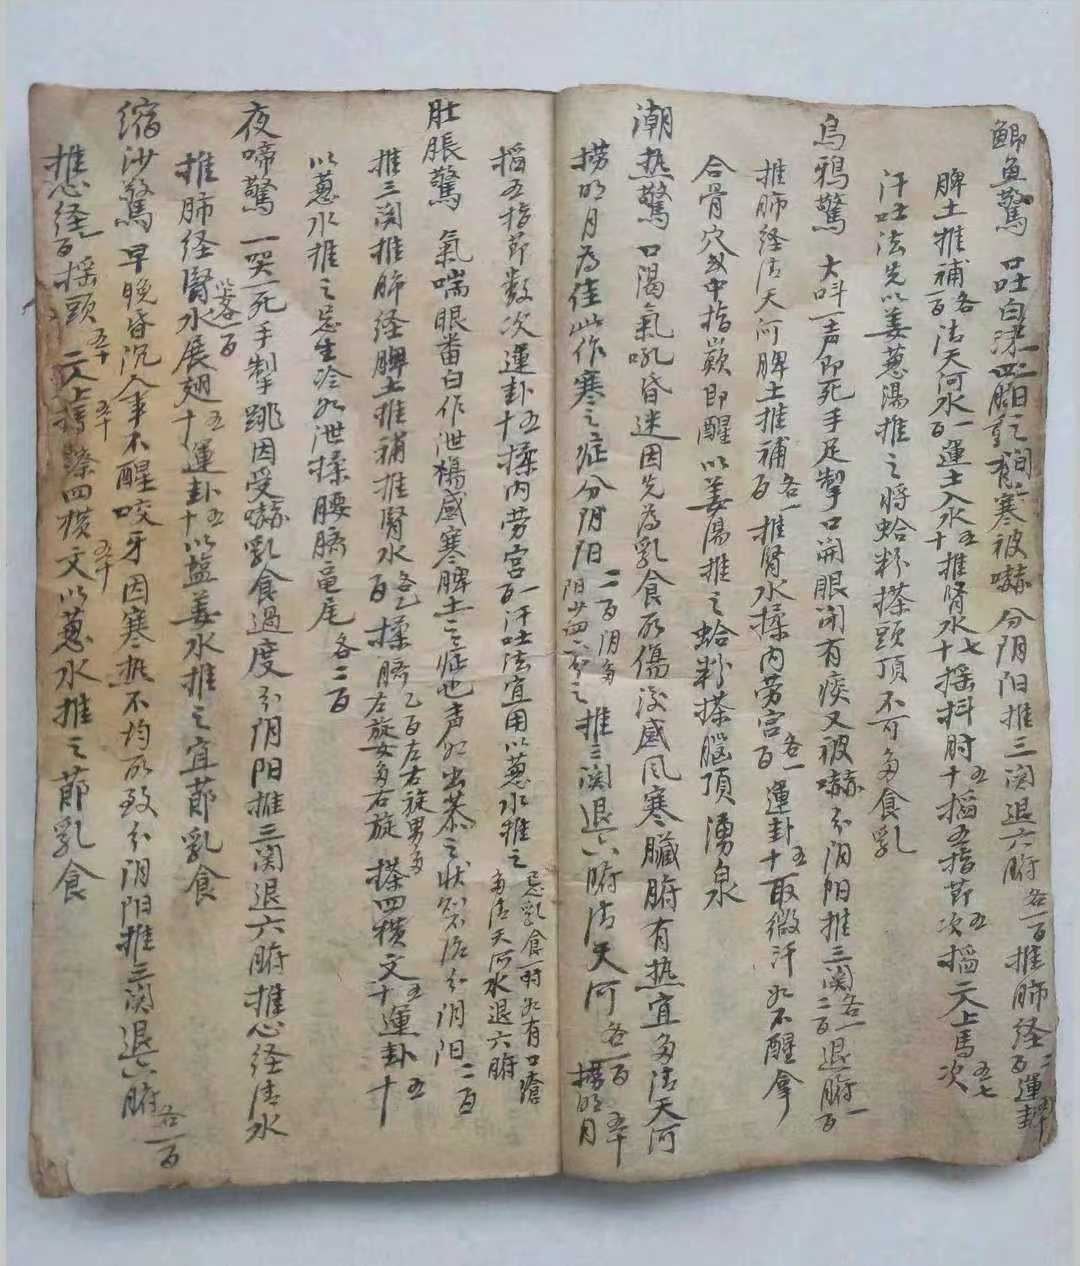 鯽魚驚 口吐白沫四肢 有寒被嚇 分阴阳推三関退六腑各一百推肺経百運卦
脾土推補各一百清天河水一百運土入水五十推腎水七十摇抖肘五十掐五指節五次掐二人上馬七次
汗吐法先以姜葱湯推之将蛤粉搽頭頂不可多食乳
烏鴉驚 大呌一声即死手足掣口開眼闭有痰又被嚇分阴阳推三関二百退腑一百
推肺経清天河脾土推補各一百推腎水揉内劳宮各一百運卦五十取微汗如不醒拿
合骨穴 中指 即醒以姜湯推之蛤粉搽腦頂湧泉
潮热驚 口渴氣吼昏迷因先為乳食所傷後感风寒臟腑有热宜多清天河
捞明月為佳此作寒之症分阴阳二百阴多阳少 分之推三関退六腑清天河各一百捞明月五十
掐五指節数次運卦五十揉内劳宫一百汗吐法宜用以葱水推之忌乳食一时如有口瘡多清天河水退六腑
肚脹驚 氣喘眼番白作泄瀉感寒脾土之症也声如出 之状 治分阴阳二百
推三関推肺経脾土推補推腎水各乙百揉臍乙百左右旋男多左旋女多右旋 搽四横文五十運卦五十
以葱水推之忌生冷如泄揉腰臍亀尾各二百
夜啼驚 一哭一死手掣跳因受嚇乳食過度分阴阳推三関退六腑推心経清水
推肺経腎水 各一百展翅五十運卦五十以塩姜水推之宜節乳食
缩沙驚 早晚昏沉人事不醒咬牙因寒热不均所致分阴阳推三関退六腑各一百
推心経一百摇頭五十二人上 五十 四横文五十以葱水推之節乳食